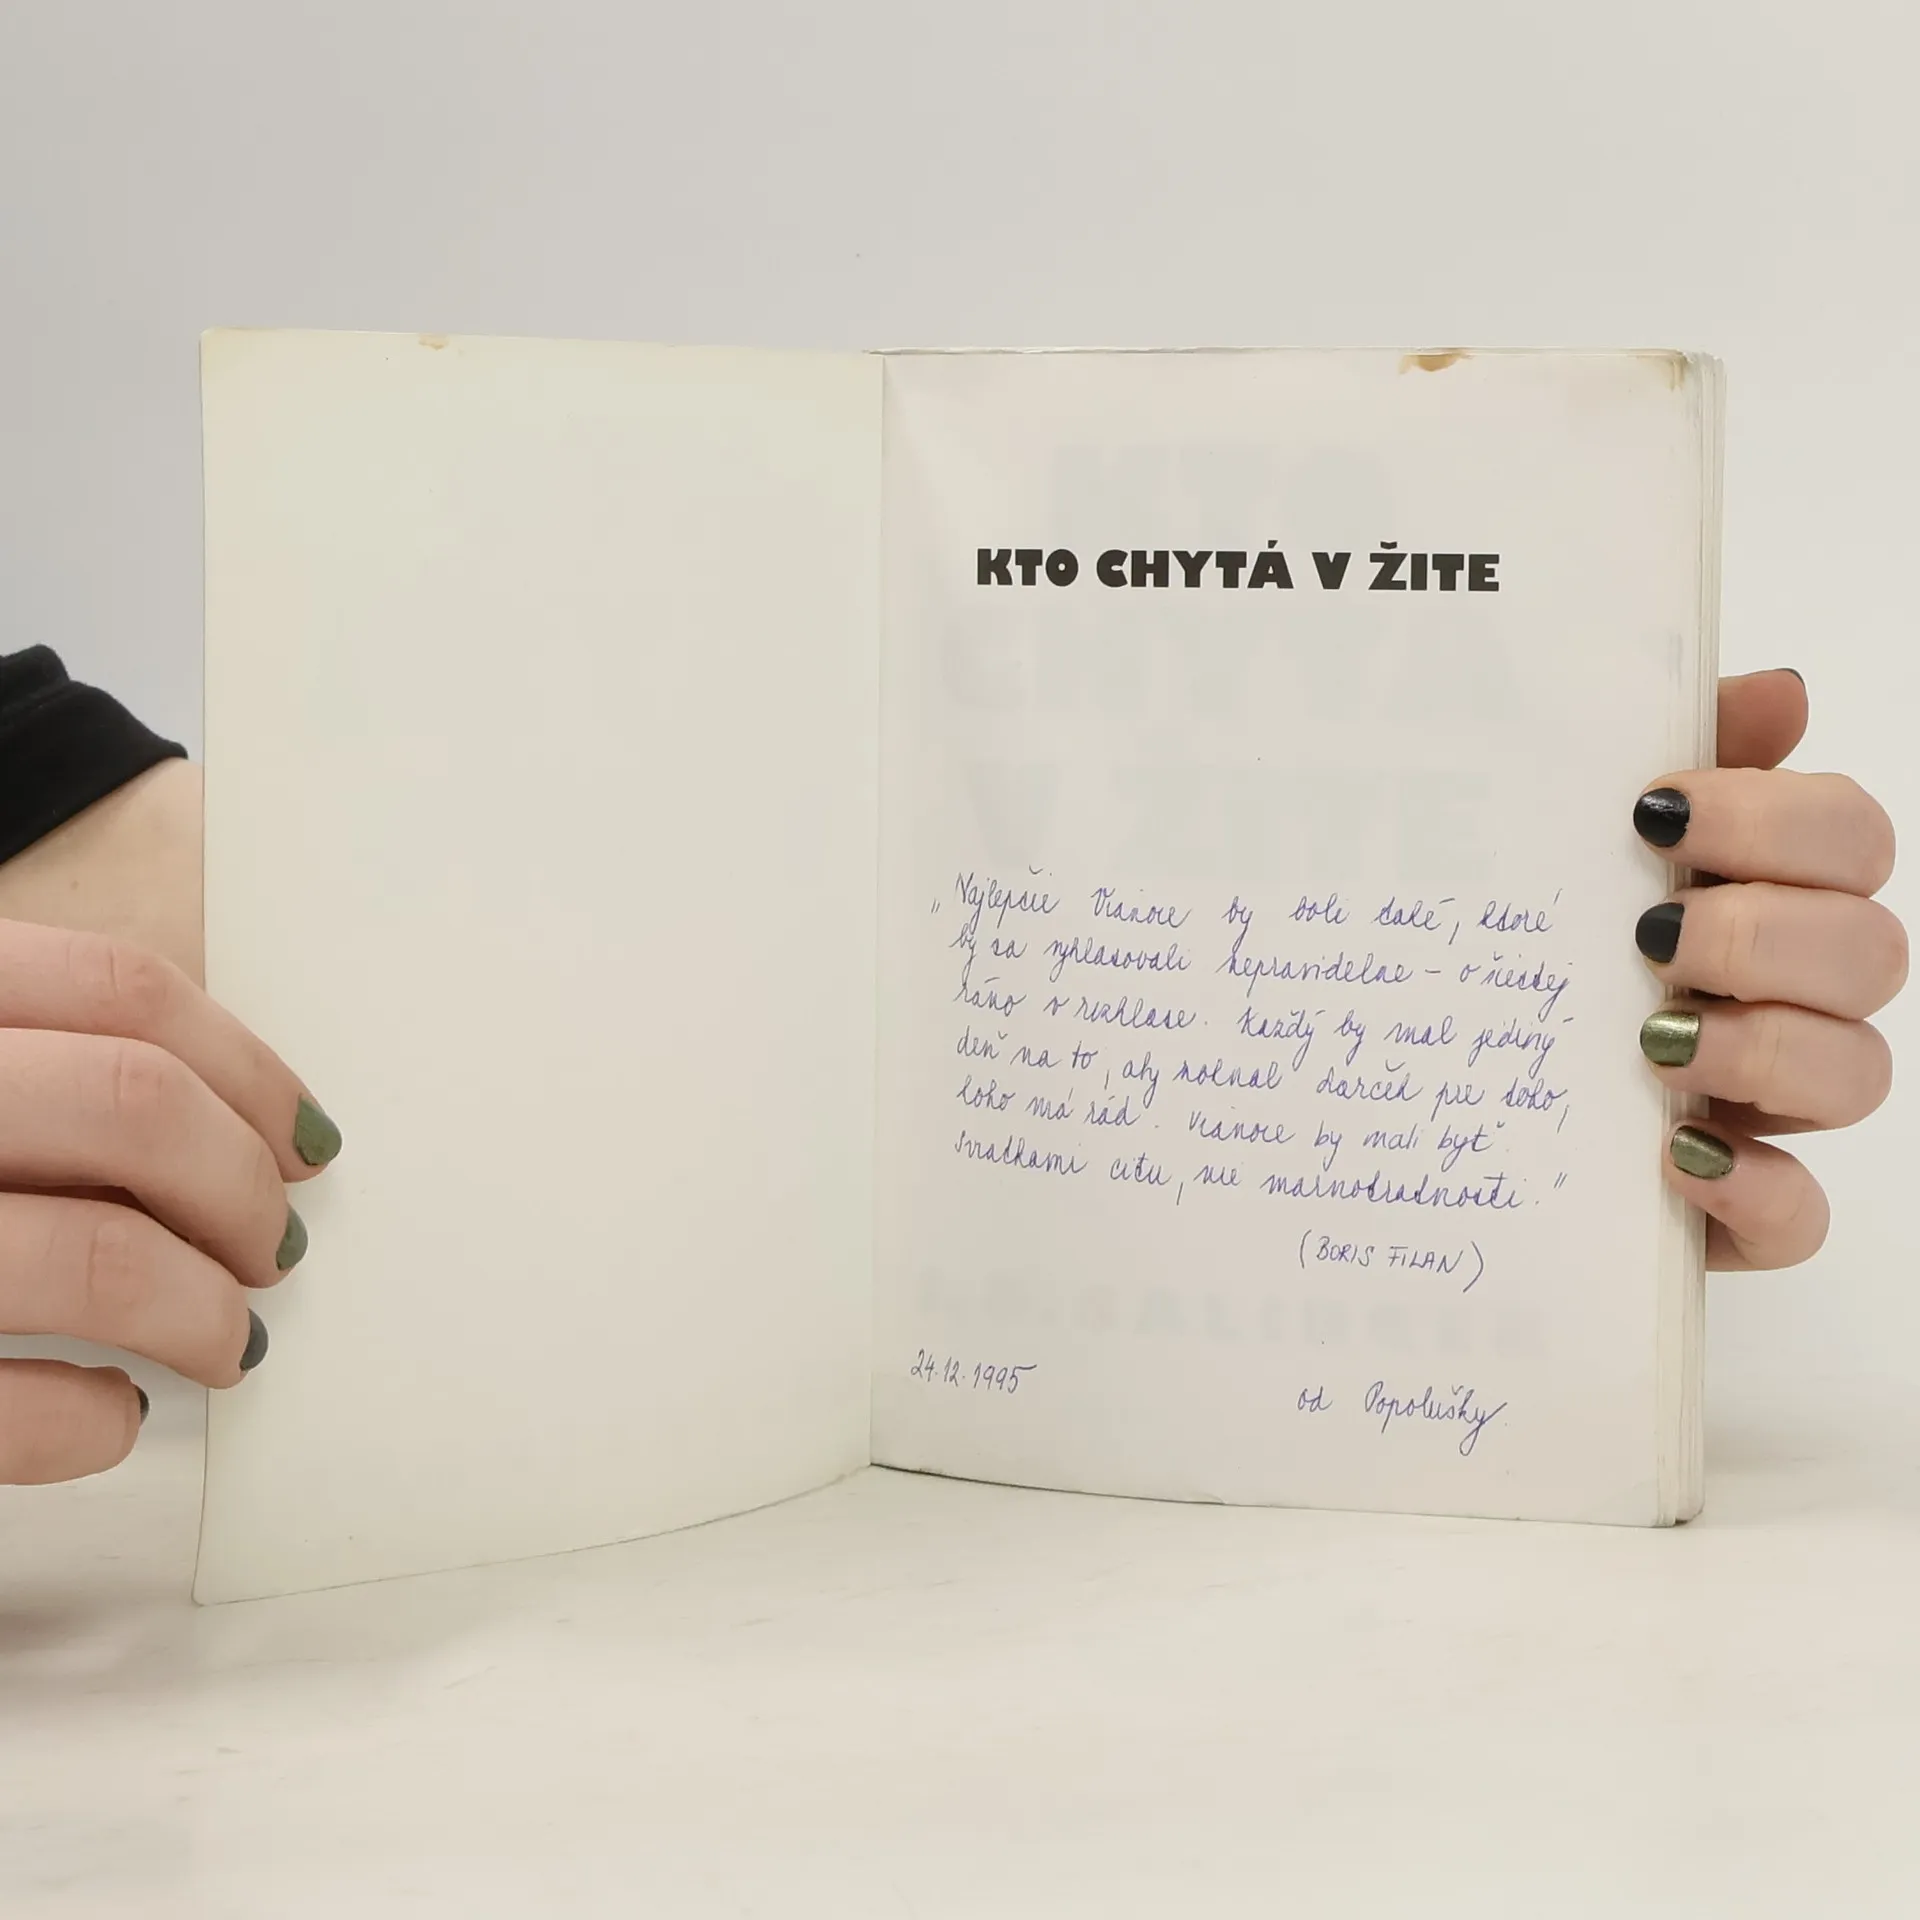 KTO CHYTÁ V ŽITE
„Najlepšie Vianoce by boli také, ktoré
by sa vyhlasovali nepravidelne – o šiestej
ráno v rozhlase. Každý by mal jediný
deň na to, aby zohnal darček pre toho,
koho má rád. Vianoce by mali byť
sviatkami citu, nie márnotratnosti.“
(BORIS FILAN)
24.12.1995
od Popolušky